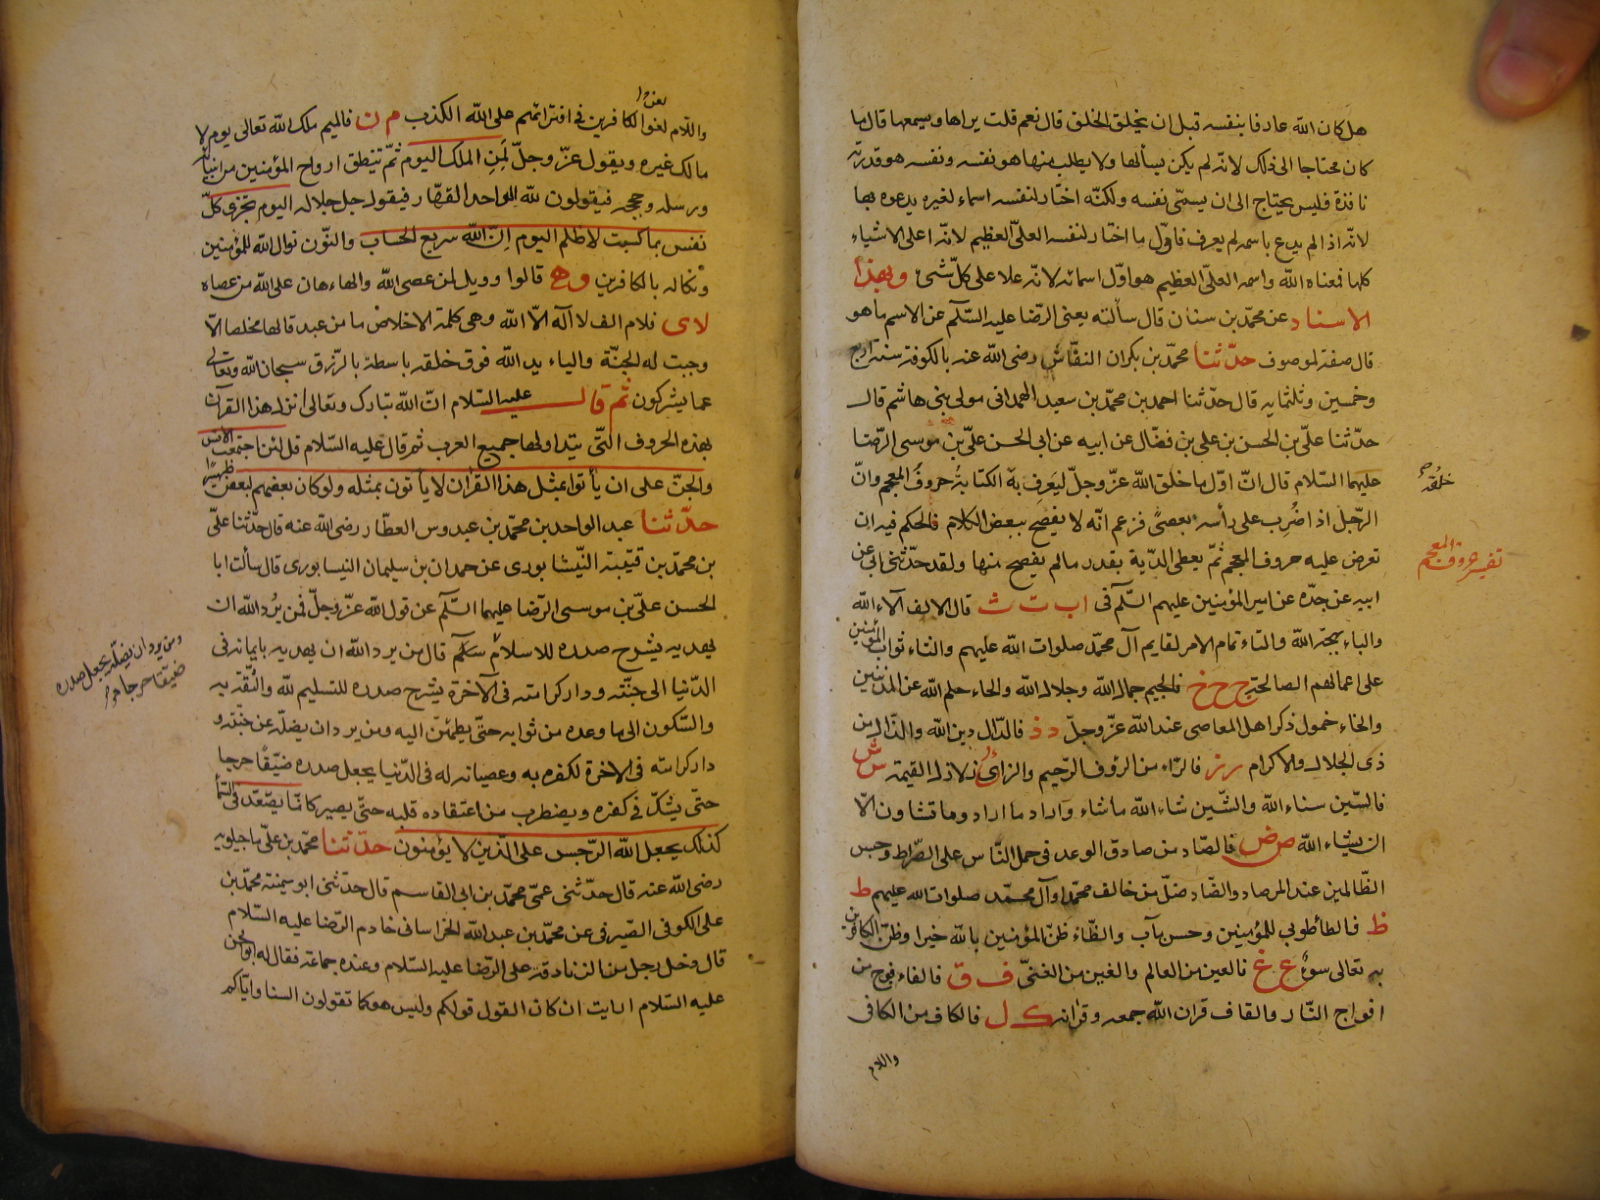 هل كان الله عارفا بنفسه قبل ان يخلق الخلق قال نعم قلت يراها ويسمعها قال ما
كان محتاجا الى ذلك لانه لم يكن يسألها ولا يطلب منها هو نفسه ونفسه هو قدرته
نافذة فليس يحتاج الى ان يسمّى نفسه ولكنّه اختار لنفسه اسماء لغيره يدعوه بها
لانّه اذا لم يدع باسمه لم يعرف فاوّل ما اختار لنفسه العلىّ العظيم لانّه اعلى الاشياء
كلها فمعناه الله واسمه العلىّ العظيم هو اوّل اسمائه لانّه علا على كلّ شئ وبهذا
الاسناد عن محمّد بن سنان قال سألته يعنى الرّضا عليه السّلم عن الاسم ما هو
قال صفة لموصوف حدّثنا محمّد بن بكران النقّاش رضى الله عنه بالكوفة سنة اربع
وخمسين وثلثمايه قال حدّثنا احمد بن محمّد بن سعيد الهمدانى مولى بنى هاشم قال
حدّثنا علىّ بن الحسن بن على بن فضّال عن ابيه عن ابى الحسن علىّ بن موسى الرّضا
عليهما السّلام قال انّ اوّل ما خلق الله عزّ وجلّ ليعرف به خلقه الكتابة حروف المعجم وانّ
الرّجل اذا ضُرِب على رأسه بعصىً فزعم انّه لا يفصح ببعض الكلام فالحكم فيه ان
تعرض عليه حروف المعجم ثمّ يعطى الدّية بقدر ما لم يفصح منها ولقد حدّثنى ابى عن
تفسير حروف المعجم
ابيه عن جدّه عن امير المؤمنين عليهم السّلم فى ا ب ت ث قال الالف آلاء الله
والباء بهجة الله والتاء تمام الامر لقايم آل محمّد صلوات الله عليهم والثاء ثواب المؤمنين
على اعمالهم الصالحة ج ح خ فالجيم جمال الله وجلال الله والحاء حلم الله عن المذنبين
والخاء خمول ذكر اهل المعاصى عند الله عزّ وجلّ د ذ فالدّال دين الله والذّال من
ذى الجلال والاكرام ر ز فالرّاء من الرؤف الرّحيم والزاى زلازل القيمة س ش
فالسّين سناء الله والشّين شاء الله ما شاء واراد ما اراد وما تشاون الّا
ان يشاء الله ص ض فالصّاد من صادق الوعد فى حمل النّاس على الصّراط وحبس
الظّالمين عند المرصاد والضّاد ضلّ من خالف محمّدا وآل محمّد صلوات الله عليهم ط
ظ فالطاء طوبى للمؤمنين وحسن مآب والظّاء ظنّ المؤمنين بالله خيرا وظنّ الكافرين
به تعالى سوء ع غ فالعين من العالم والغين من الغنىّ ف ق فالفاء فوج من
افواج النّار والقاف قران الله جمعه وقرانه ك ل فالكاف من الكافى
واللام
واللّام لغو الكافرين فى افترائهم على الله الكذب م ن فالميم ملك الله تعالى يوم لا
مالك غيره ويقول عزّ وجلّ لمن الملك اليوم ثمّ تنطق ارواح المؤمنين من انبيائه
ورسله وحججه فيقولون لله الواحد القهّار فيقول جل جلاله اليوم تجزى كلّ
نفس بما كسبت لا ظلم اليوم انّ الله سريع الحساب والنّون نوال الله للمؤمنين
ونكاله بالكافرين و ه قالواو ويل لمن عصى الله والهاء هان على الله من عصاه
لا ى فلام الف لا اله الّا الله وهى كلمة الاخلاص ما من عبد قالها مخلصا الّا
وجبت له الجنّة والياء يد الله فوق خلقه باسطة بالرّزق سبحان الله وتعالى
عما يشركون ثم قال عليه السّلام انّ الله تبارك وتعالى انزل هذا القرآن
بهذه الحروف الّتى يتداولها جميع العرب ثم قال عليه السّلام قل لئن اجتمعت الانس
والجنّ على ان يأتوا بمثل هذا القرآن لا يأتون بمثله ولو كان بعضهم لبعض ظهيرا
حدّثنا عبد الواحد بن محمّد بن عبدوس العطّار رضى الله عنه قال حدّثنا علىّ
بن محمّد بن قتيبة النّيشابورى عن حمدان بن سليمان النيسابورى قال سألت ابا
الحسن علىّ بن موسى الرّضا عليهما السّلم عن قول الله عزّ وجلّ فمن يُرد الله ان
يهديه يشرح صدره للاسلام قال من يرد الله ان يهديه بايمانه فى
ومن يرد ان يضلّه يجعل صدره
ضيّقا حرجا
الدّنيا الى جنّته ودار كرامته فى الآخرة يشرح صدره للتسليم لله والثّقة به
والسّكون الى ما وعده من ثوابه حتّى يطمئنّ اليه ومن يرد ان يضلّه عن جنّته و
دار كرامته فى الاخرة لكفره به وعصيانه له فى الدّنيا يجعل صدره ضيّقًا حرجا
حتّى يشكّ فى كفره ويضطرب من اعتقاده قلبه حتّى يصير كانّما يصّعّد فى السّمآء
كذلك يجعل الله الرّجس على الّذين لا يؤمنون حدّثنا محمّد بن علىّ ماجيلويه
رضى الله عنه قال حدّثنى عمّى محمّد بن ابى القاسم قال حدّثنى ابو سمينة محمّد بن
على الكوفى الصّيرفى عن محمّد بن عبد الله الخراسانى خادم الرّضا عليه السّلام
قال دخل رجل من الزنادقة على الرّضا عليه السّلام وعنده جماعة فقال له ابو الحسن
عليه السّلام ارايت ان كان القول قولكم وليس هو كما تقولون السنا وايّاكم